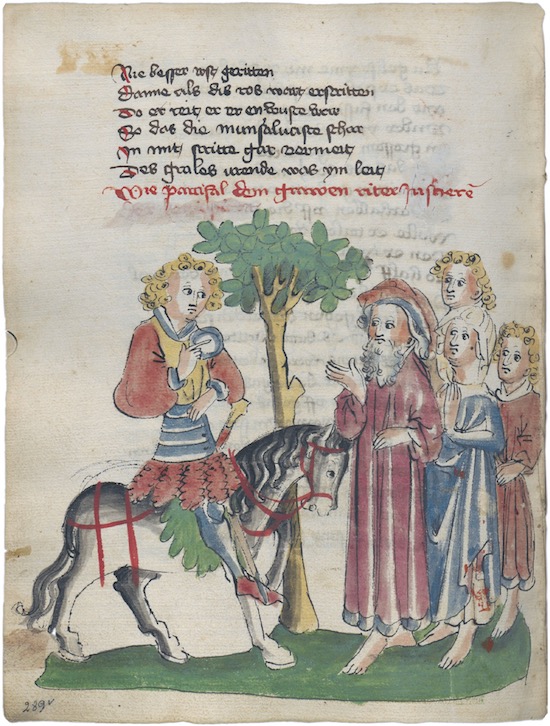 Nie besser rost geritten
Danne als dis ros wart erstritten
Do er reit er er enwuste war
So das die munsaluaiste schar
In mit stritte gar vermeit
Des grales vremde was ym leit
Wie parcifal dem grawen ritter Justierē
289v